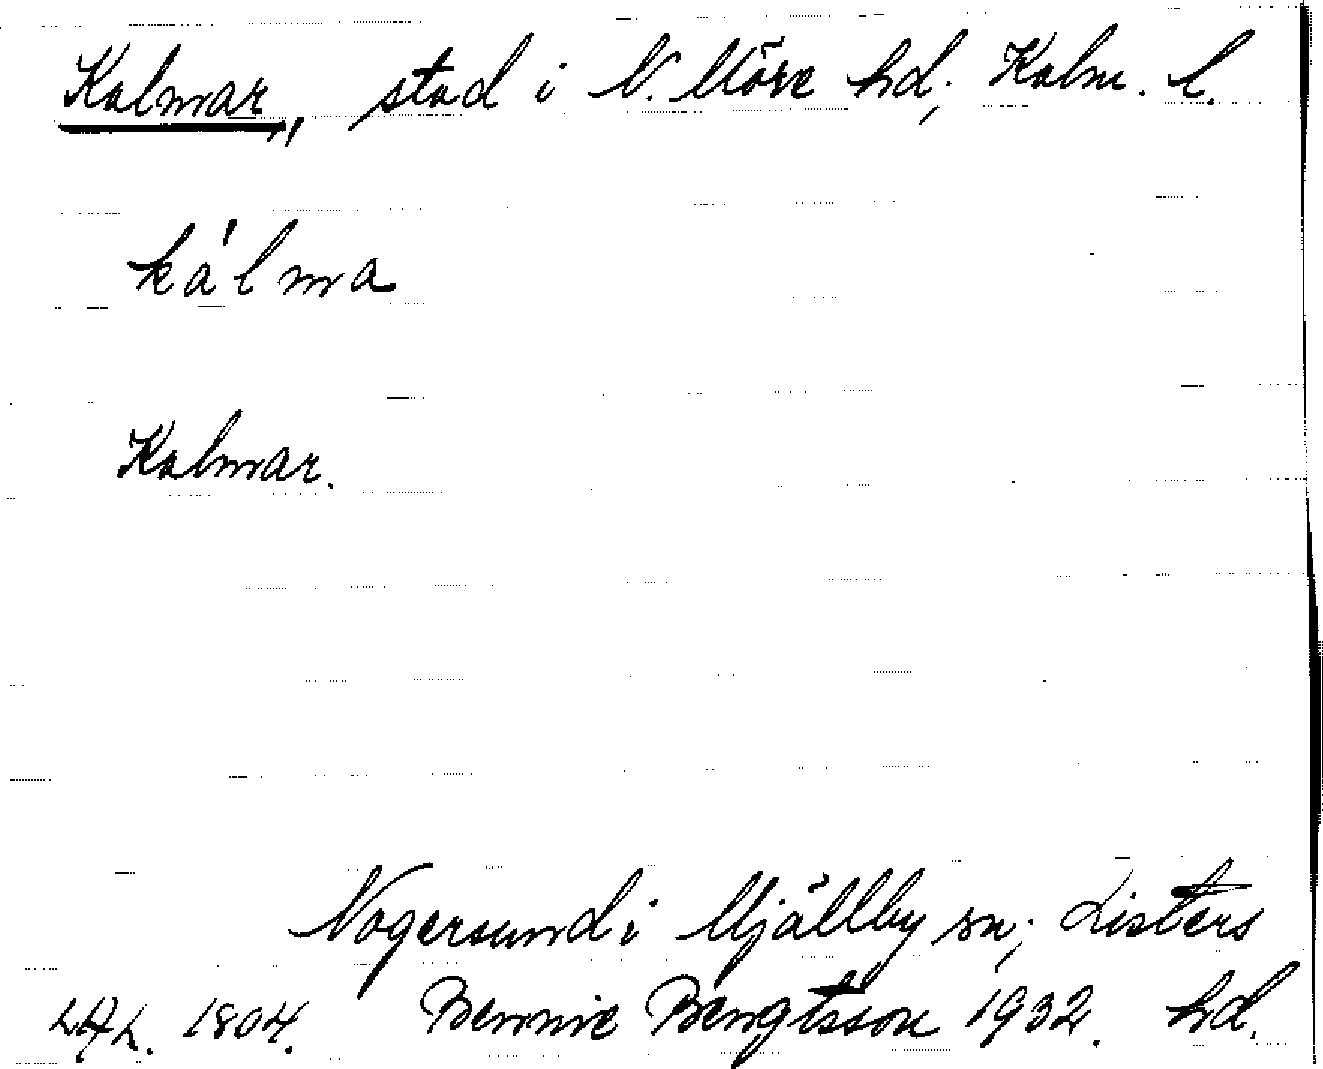 Kalmar, stad i N. Möre hd; Kalm. l.
ka'lma
Kalmar.
Nogersund i Mjällby sn; Listers
LAL. 1804. Bennie Bengtsson 1932. hd.